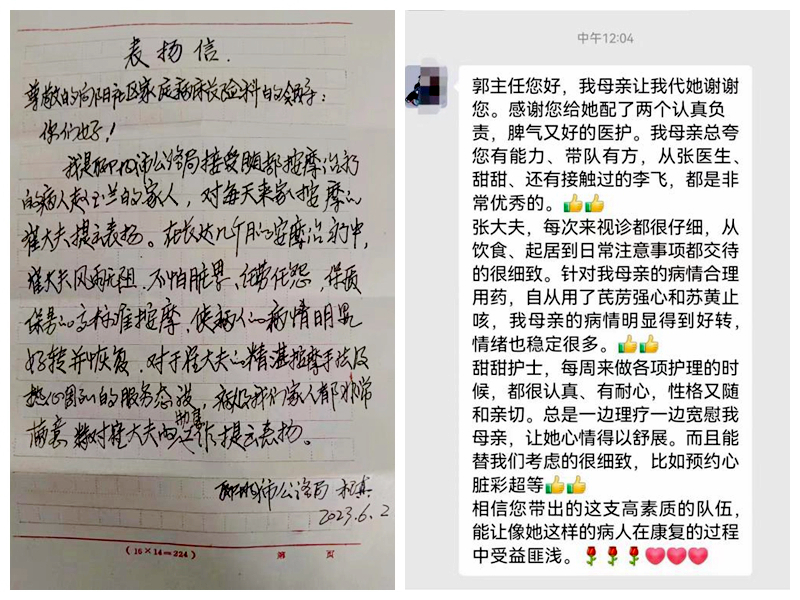 表扬信.
尊敬的向阳社区家庭病床长险科的领导:
你们好!
我是 市公路局接受腹部按摩治疗
的病人赵玉兰的家人,对每天来家按摩的
崔大夫提出表扬。在长达几个月的按摩治疗中,
崔大夫风雨无阻、不怕脏累、任劳任怨,保质
保量的高标准按摩,使病人的病情明显
好转并恢复,对于崔大夫的精湛按摩手法及
热心周到的服务态度,病人及我们家人都非常
满意 特对崔大夫的 工作提出表扬。
市公路局
2023.6.2
(16×14=224) 第 页
中午12:04
郭主任您好,我母亲让我代她谢谢
您。感谢您给她配了两个认真负
责,脾气又好的医护。我母亲总夸
您有能力、带队有方,从张医生、
甜甜、还有接触过的李飞,都是非
常优秀的。👍👍
张大夫,每次来视诊都很仔细,从
饮食、起居到日常注意事项都交待
的很细致。针对我母亲的病情合理
用药,自从用了芪苈强心和苏黄止
咳,我母亲的病情明显得到好转,
情绪也稳定很多。👍👍
甜甜护士,每周来做各项护理的时
候,都很认真、有耐心,性格又随
和亲切。总是一边理疗一边宽慰我
母亲,让她心情得以舒展。而且能
替我们考虑的很细致,比如预约心
脏彩超等👍👍
相信您带出的这支高素质的队伍,
能让像她这样的病人在康复的过程
中受益匪浅。🌹🌹🌹❤❤❤